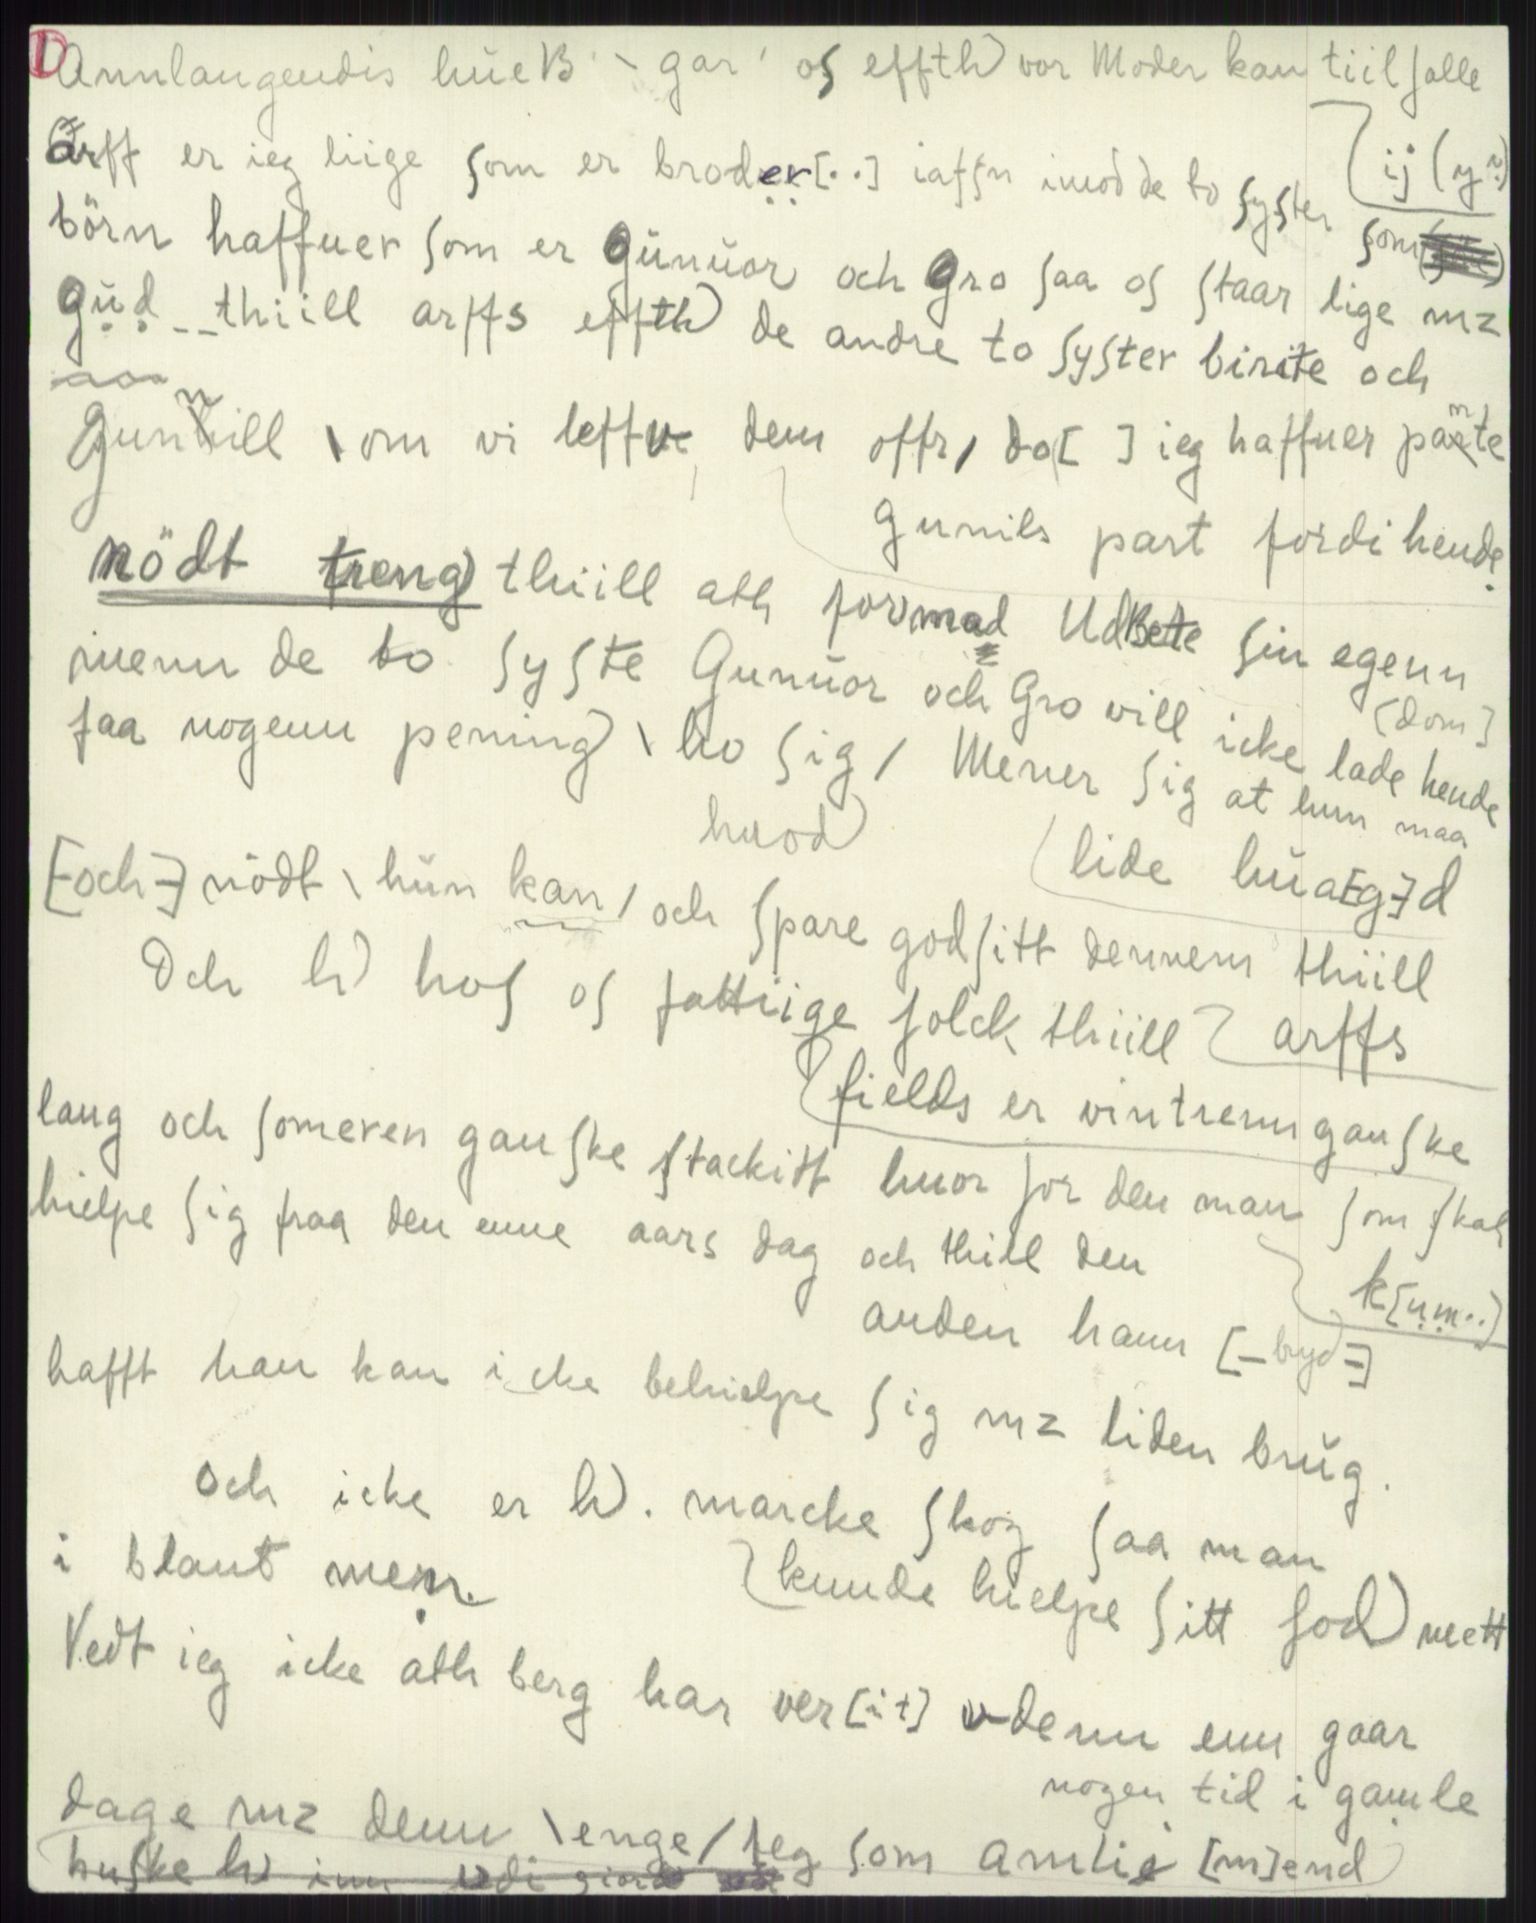 1
Annlangendis hueß \ gar / os effth) vor Moder kan tiilfalle
Arff er ieg liige som er broder[..] iaffn imod de to syster ij (
börn haffuer som er Gŭnŭor och Gro saa os staar lige mz som
Gŭd__thiill arffs effth) de andre to syster birite och
Gunnill \ om vi leffve dem offr, do[ ] ieg haffuer pante
Gunils part fordi hende
nödt treng) thiill ath formad UdBete sin egenn
menn de to syste Gunŭor och Gro vill icke lade hende [dom]
faa nogenn pening) \ ho sig / Mener sig at hun maa
huod)
lide hŭa[g]d
[-och-] nödt \ hŭn kan / och spare godsitt dennem thiill
Och h) hos os fattiige folck thiill arffs
fields er vintrenn ganske
lang och someren ganske stackitt huor for den man som skal
hielpe sig fraa den enne aars dag och thill den
k[um..]
anden hann [-byd-]
hafft han kan icke behielpe sig mz liden brŭg.
och icke er h). marcke skog saa man
i blant menn.
kunde hielpe sitt fod) mett
Vedt ieg icke ath berg har ver[it] vdenn enn gaar
nogen tid i gamle
dage mz denn \ enge / Jeg som amlie [m]end
huske h) inn